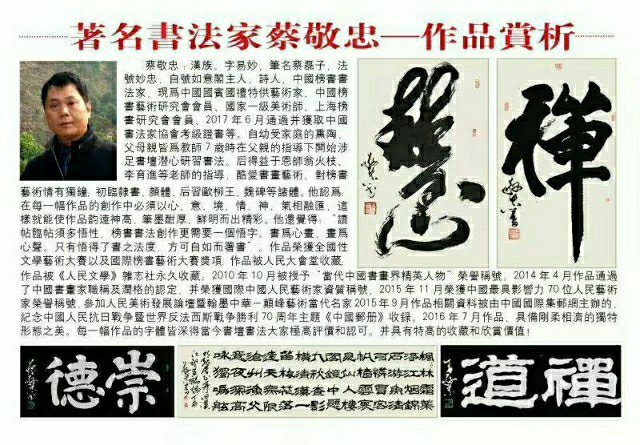 著名書法家蔡敬忠—作品賞析
蔡敬忠，漢族。字易妙，筆名蔡磊子，法
號妙忠，自號如意閣主人，詩人，中國榜書書
法家，現爲中國國賓國禮特供藝術家，中國榜
書藝術研究會會員、國家一級美術師、上海榜
書研究會會員、2017年6月通過并獲取中國
書法家協會考级證書等。自幼受家庭的熏陶，
父母親皆爲教師7歲時在父親的指導下開始涉
足書壇潜心研習書法。后得益于恩師翁火枝、
李育進等老師的指導，酷愛書畫藝術，對榜書
藝術情有獨鐘，初臨隸書、顔體，后習歐柳王，魏碑等諸體。他認爲：
在每一幅作品的創作中必須以心、意、境、情、神、氣相融匯，這
樣就能使作品韵遠神高，筆墨酣厚，鮮明而出精彩。他還覺得：“讀
帖臨帖須多悟性，榜書書法創作更需要一個悟字。書爲心畫，畫爲
心聲。只有悟得了書之法度，方可自如而著書”。作品榮獲全國性
文學藝術大賽以及國際榜書藝術大賽獎項，作品被人民大會堂收藏，
作品被《人民文學》雜志社永久收藏。2010年10月被授予“當代中國書畫界精英人物”榮譽稱號，2014年4月作品通過
了中國書畫家職稱及潤格的認定，并榮獲國際中國人民藝術家資質稱號，2015年11月榮獲中國最具影響力70位人民藝術
家榮譽稱號，參加人民美術發展論壇暨翰墨中華—顛峰藝術當代名家2015年9月作品相關資料被由中國國際集郵網主辦的，
纪念中國人民抗日戰争暨世界反法西斯戰争勝利70周年主题《中國郵册》收録。2016年7月作品、具備剛柔相濟的獨特
形態之美。每一幅作品的字體皆深得當今書壇書法大家極高評價和認可。并具有特高的收藏和欣賞價值！
禪
崇德
禪道